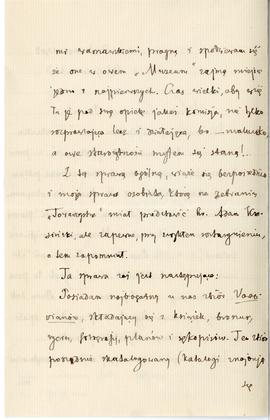 mi warunkami, pragnę i spodziewam się
że one w owem „Muzeum" zajmą miejsce
jedno z najpierwszych. Czas wielki, aby wziął
Tą pod swą opiekę jakaś komisja, nie tylko
rozprawiająca lecz i działająca, bo — maluczko,
a owe starożytności myszlem się staną!..
Z tą sprawą ogólną, wiąże się bezpośrednio
i moja sprawa osobista, którą na zebraniu
„Towarzystwa" miał przedstawić hr. Adam Kra-
siński, ale zapewne, przy zwykłem roztargnieniu,
o tem zapomniał.
Ta sprawa zaś jest następująca:
Posiadam najbogatszy u nas zbiór Varso-
vianów, składający się z książek, broszur,
rycin, fotografij, planów i rękopisów. Ten zbiór
porządnie skatalogowany (katalogi znajdują
się